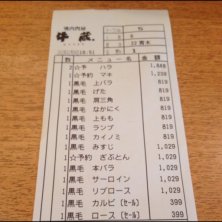 焼肉問屋
牛蔵
5
数 メニュー名 金額
2 ☆予 ハラ 1,648
1 ☆予約 マキ 1,239
1 黒毛 上バラ 819
1 黒毛 げた 819
1 黒毛 肩三角 819
1 黒毛 なかにく 819
1 黒毛 上もも 819
1 黒毛 ランプ 819
1 黒毛 カイノミ 819
1 黒毛 みすじ 1,029
1 ☆予約 ざぶとん 1,029
1 黒毛 本バラ 1,029
1 黒毛 サーロイン 1,029
1 黒毛 リブロース 1,029
1 黒毛 カルビ (ｾｰﾙ) 399
1 黒毛 ロース (ｾｰﾙ) 399